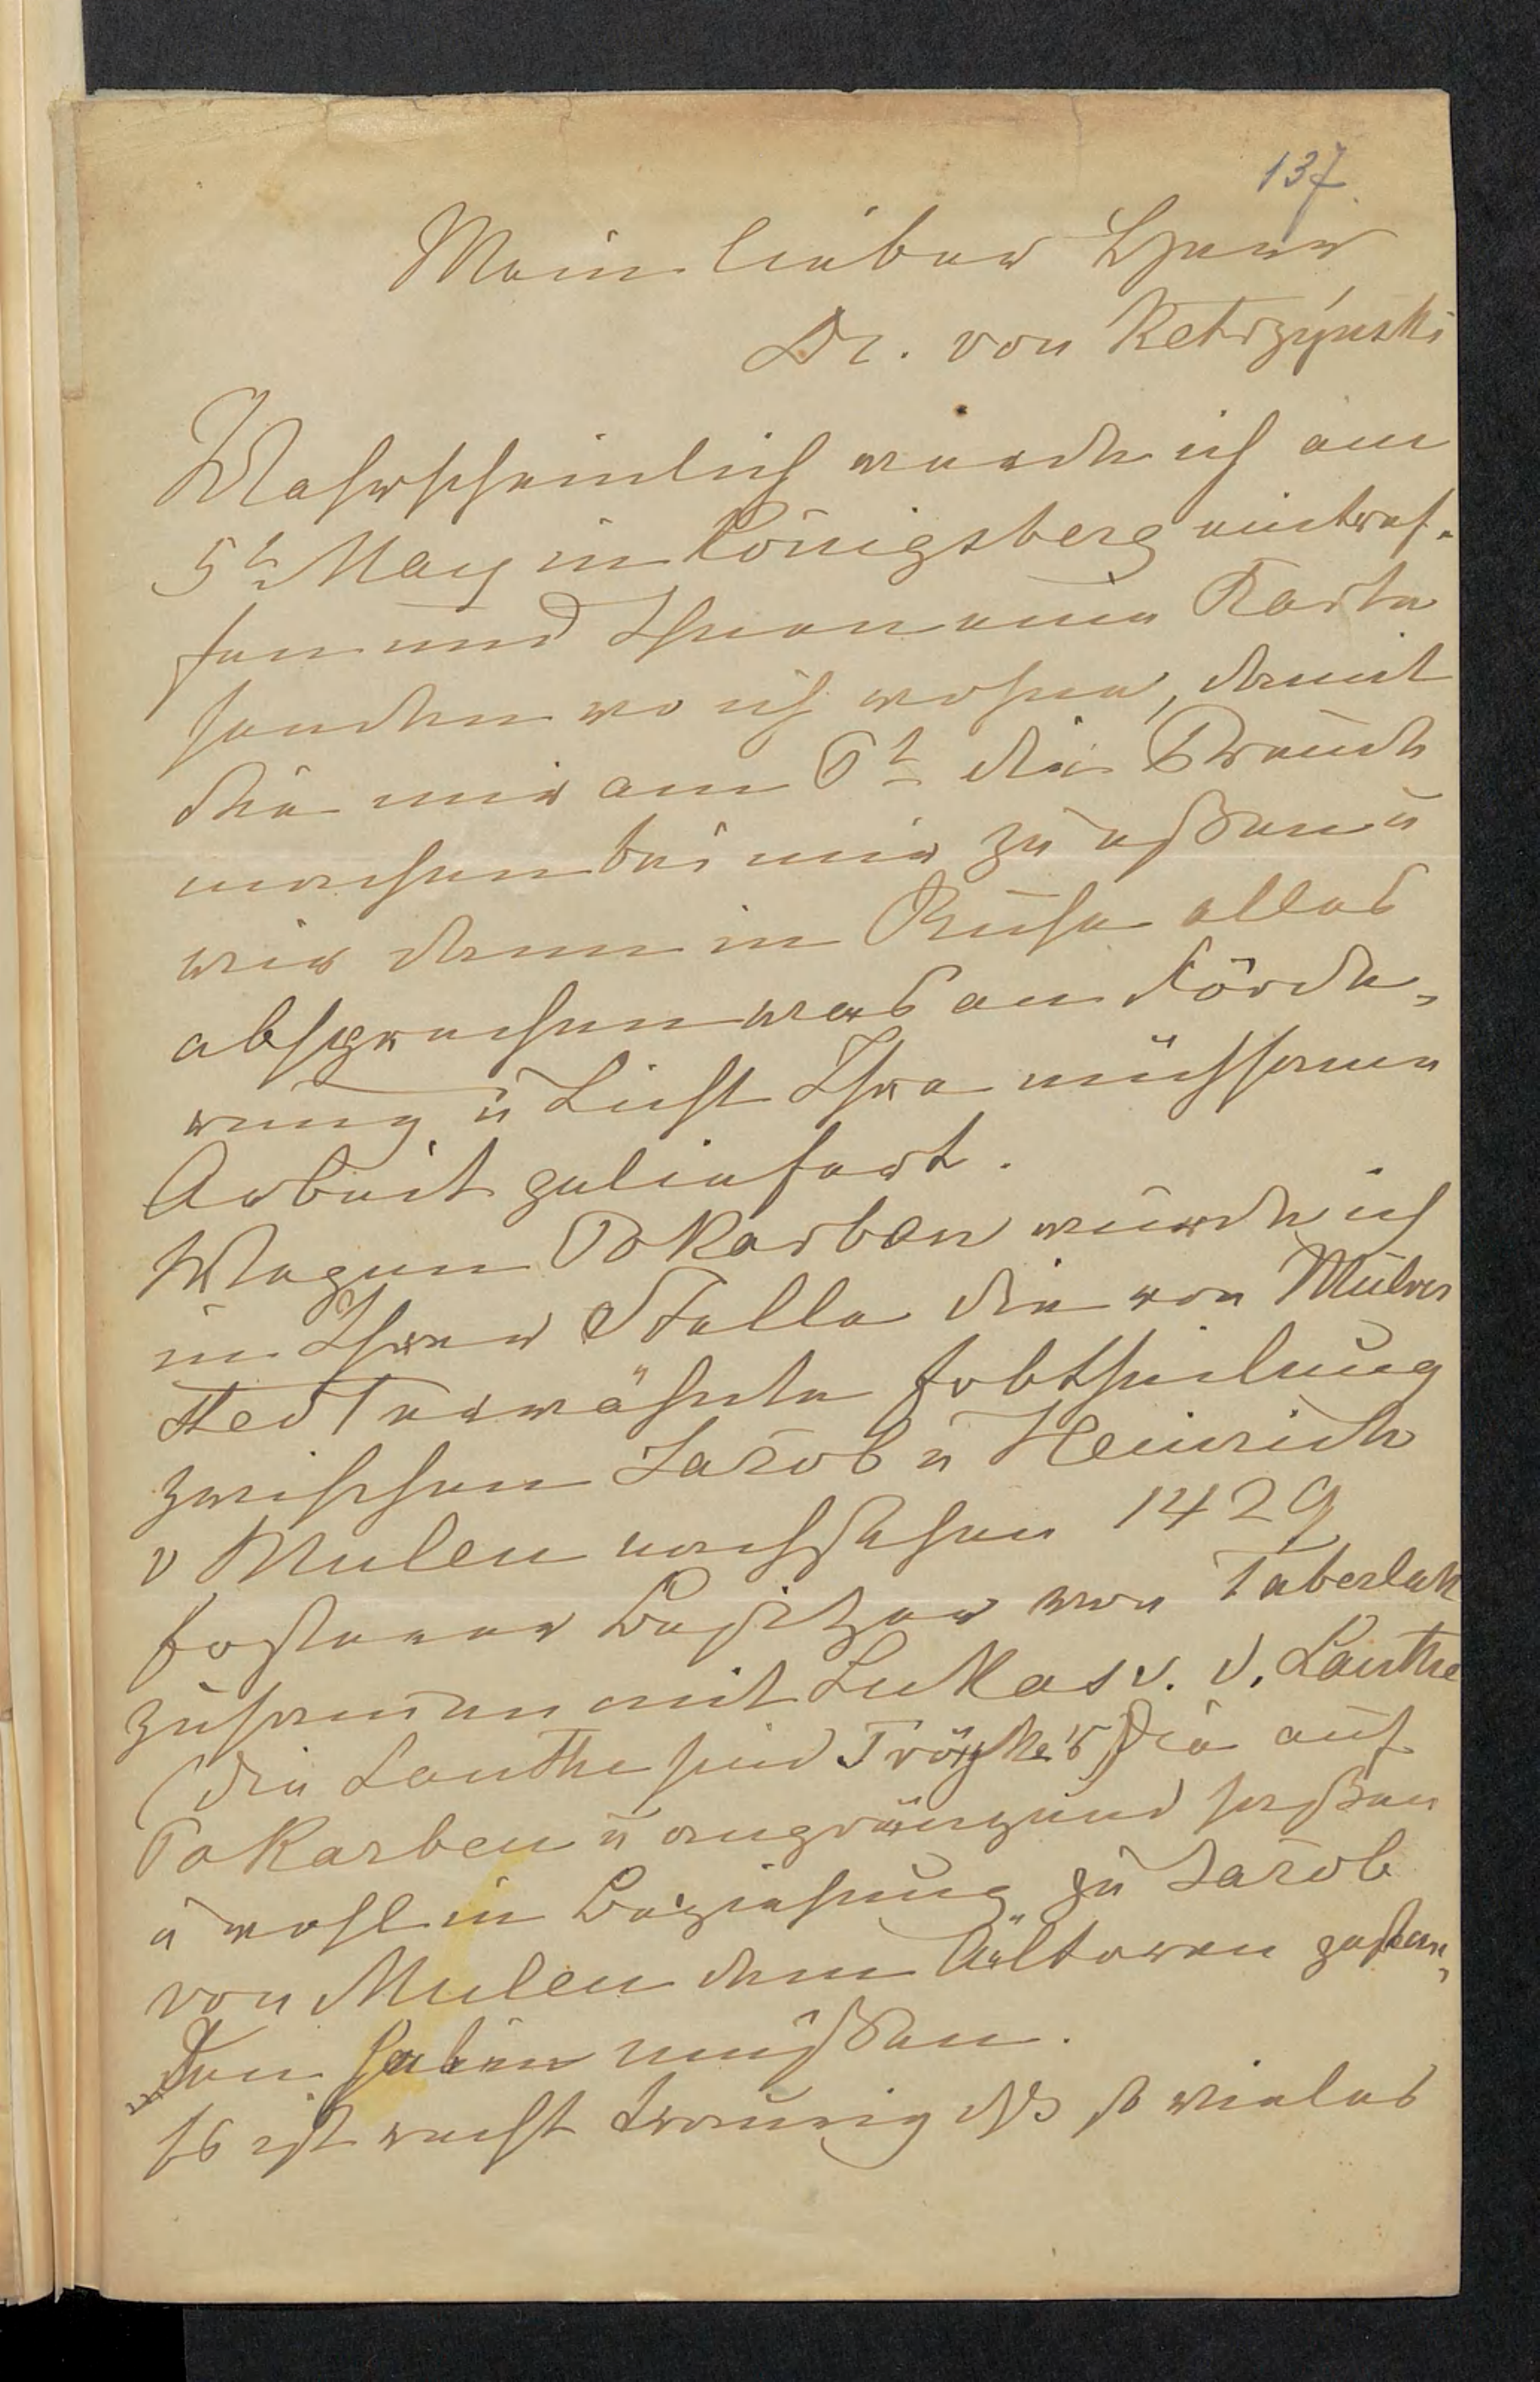 137
Mein lieber Herr
Dr. von Ketrzýnski
Wahrscheinlich werde ich am
5t May in Königsberg eintref-
fen und Ihnen eine Karte
senden wo ich wohne, damit
Sie mir am 6t die Freude
machen bei mir zu eßen u
wir dann in Ruhe alles
absprechen was an Förde-
rung u Licht Ihre mühsame
Arbeit geliefert.
Wegen Pokarben würde ich
in Ihrer Stelle die von Mülver
stedt erwähnte Erbtheilung
zwischen Jacob u Heinrich
v Mulen nachsehen 1429
Ersterer Besitzer von Taberlak
zusammen mit Lukas v. d. Lauthe
(die Lauthe sind Tröpke's) die auf
Pokarben u angränzend saßen
u wohl in Beziehung zu Jacob
von Mulen dem Aelteren gestan-
den haben müßen.
Es ist recht traurig dß so vieles